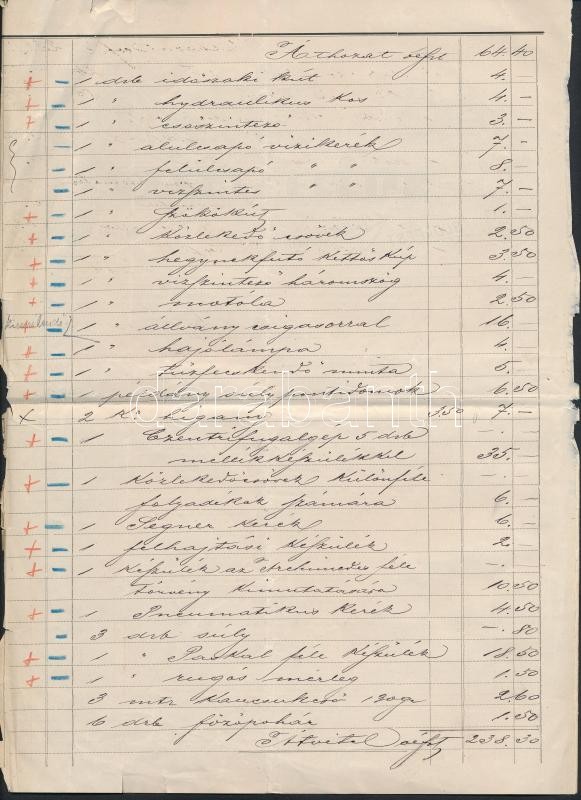 Áthozat oéfrt 64.40
1 drb időszaki kút 4.–
1 " hydraulikus kos 4.–
1 " csőszintező 3.–
1 " alulcsapó vizikerék 7.–
1 " felülcsapó " " 8.–
1 " vizszintes " " 7.–
1 " szökőkút 1.–
1 " közlekedő csövek 2.50
1 " hegynekfutó kettős kúp 3.50
1 " vizszintező háromszög 4.–
1 " motóla 2.50
1 " állvány csigasorral 16.–
1 " hajólámpa 4.–
1 " tűzfecskendő minta 5.–
1 példány súly pontidomok 6.50
x 2 K. higany 3.50 7.–
1 Czentrifugalgép 5 drb –.–
mellék készülékkel 35.–
1 Közlekedőcsövek különféle –.–
folyadékok számára 6.–
1 Segner kerék 6.–
1 felhajtási készülék 2.–
1 Készülék az Archimedes féle –.–
törvény kimutatására 10.50
1 Pneumatikus kerék 4.50
3 drb súly –.80
1 " Paskal féle készülék 18.50
1 " rugós mérleg 1.50
3 mtr Kaucsukcső 130gr 2.60
6 drb főzőpohár 1.50
Átvitel oéfrt 238.30
darabanth